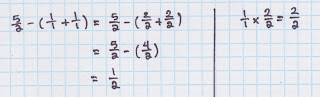 5/2 - (1/1 + 1/1) = 5/2 - (2/2 + 2/2)
= 5/2 - (4/2)
= 1/2
1/1 × 2/2 = 2/2